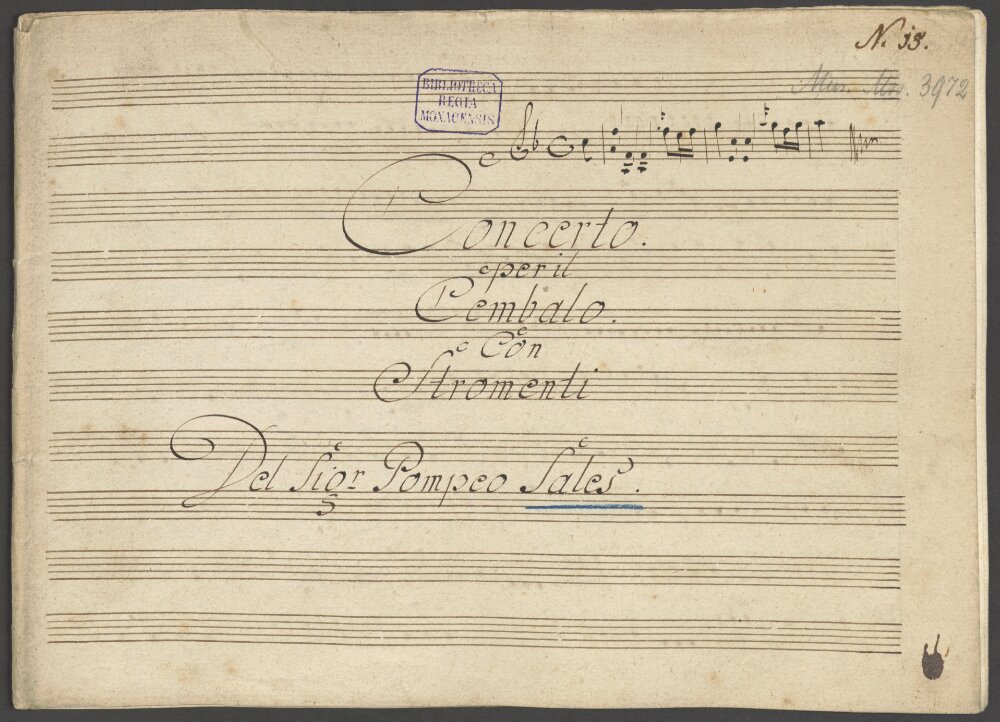 N. 13.
Mus. Mss. 3972
BIBLIOTHECA
REGIA
MONACENSIS
Concerto.
per il
Cembalo.
Con
Stromenti
Del Sigr. Pompeo Sales.